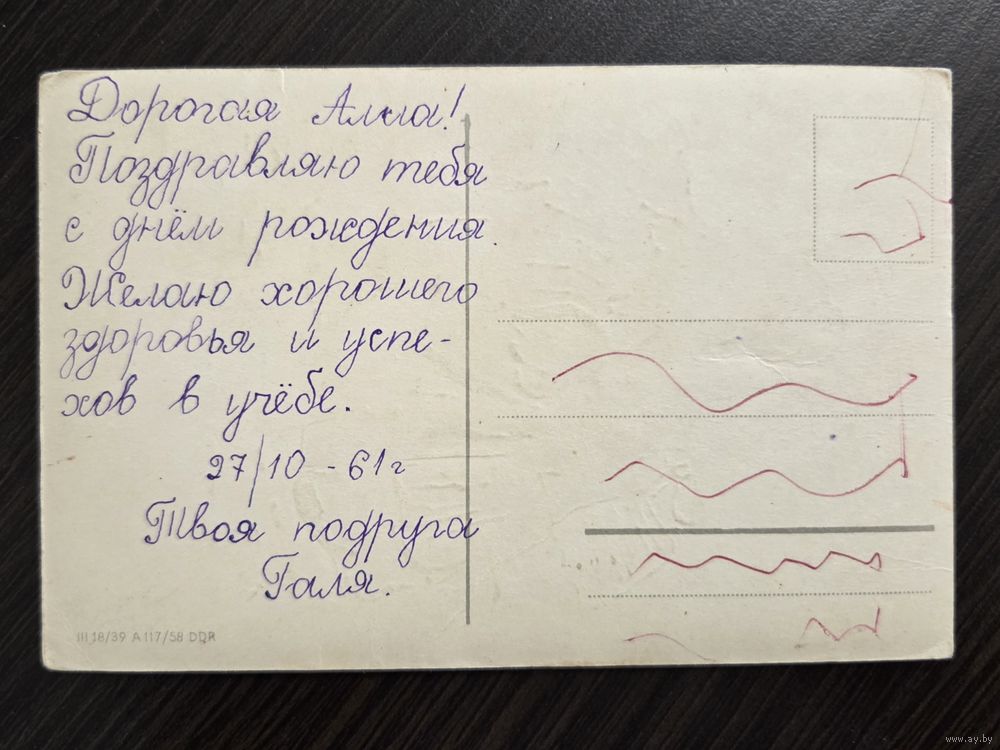 Дорогая Алла!
Поздравляю тебя
с днём рождения.
Желаю хорошего
здоровья и успе-
хов в учёбе.
27/10 - 61г
Твоя подруга
Галя.
III 18/39 A 117/58 DDR
www.ay.by